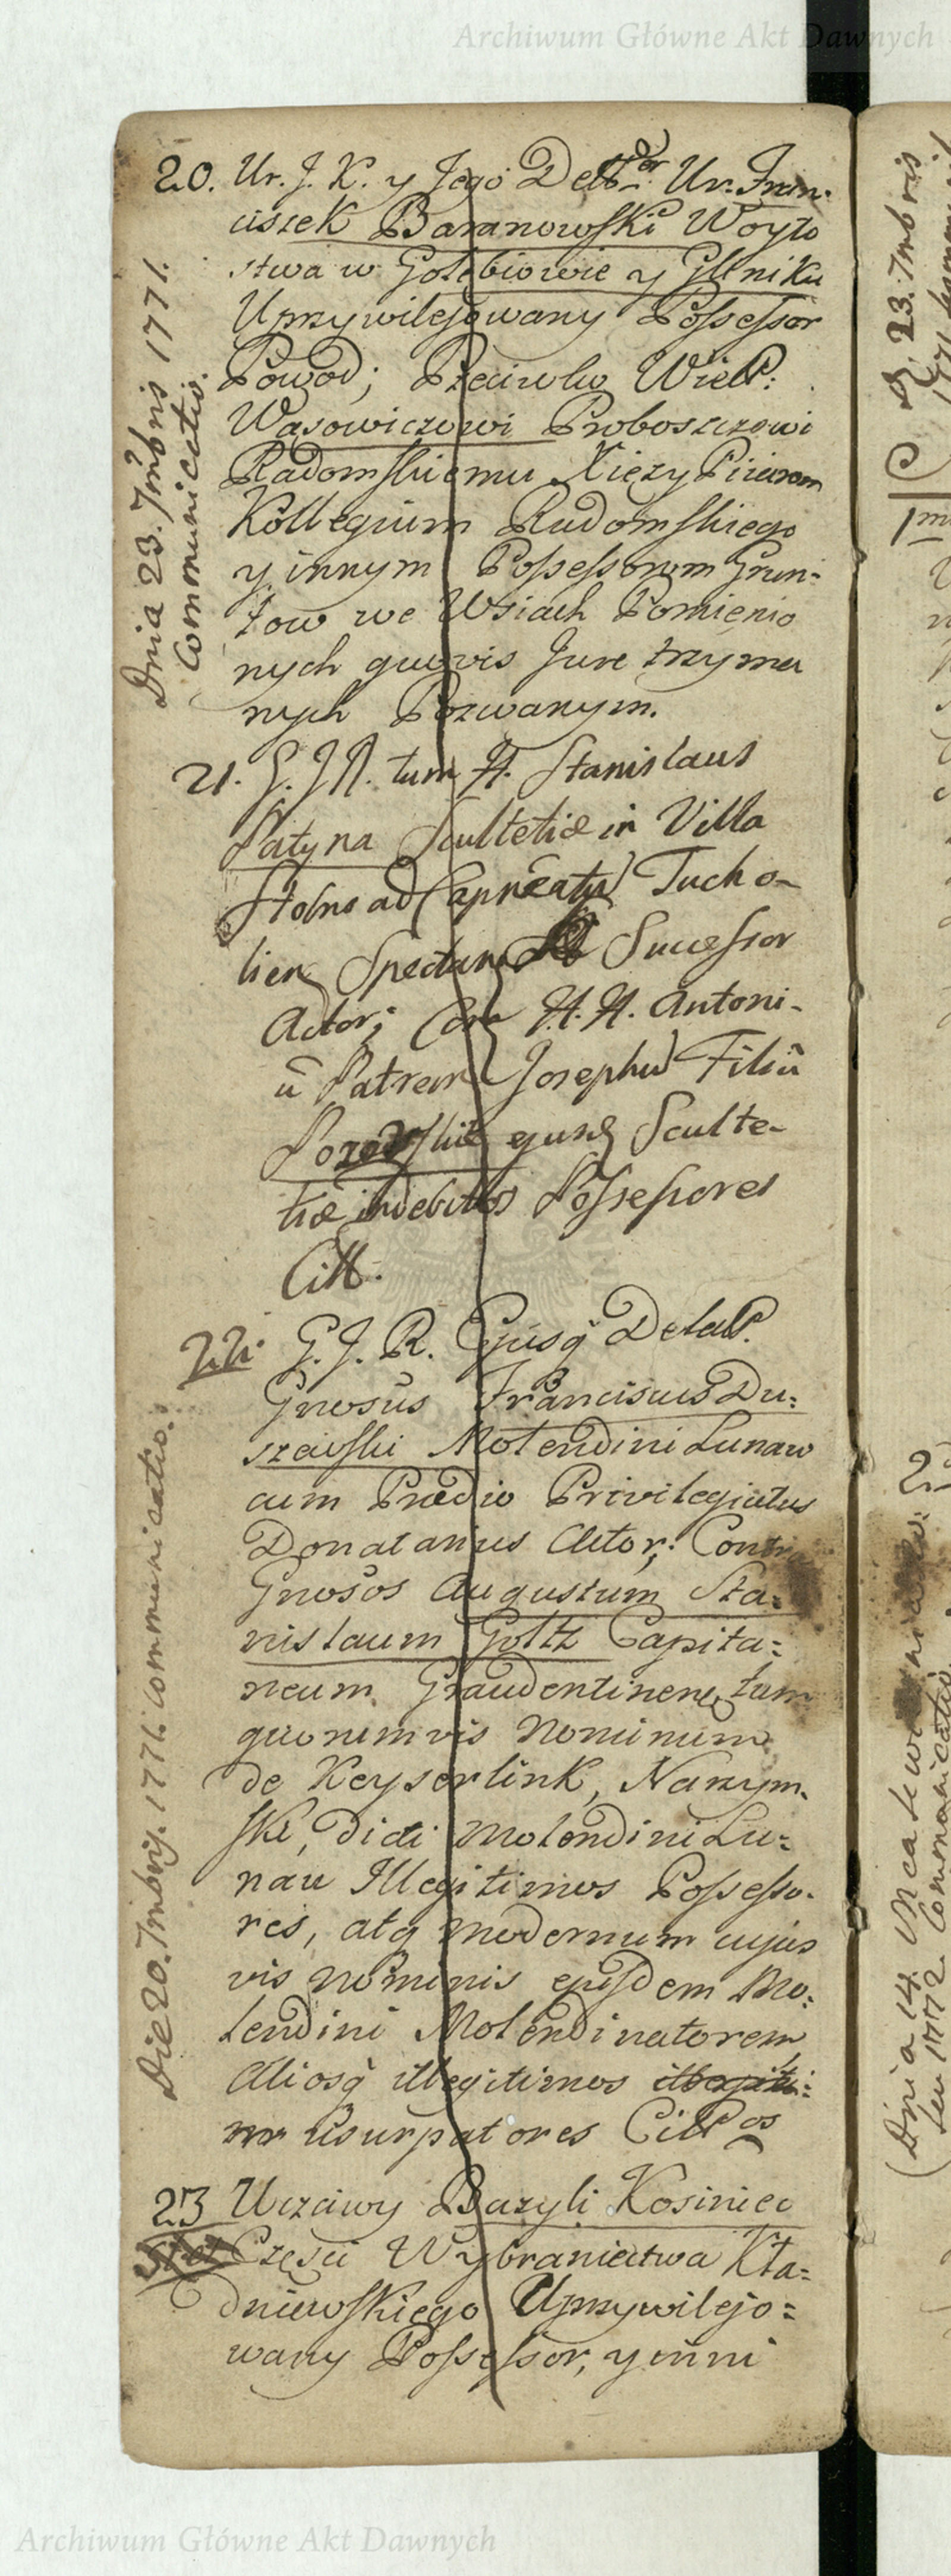 Archiwum Główne Akt Dawnych
20. Ur. J. K. y Jego Delttor Ur. Fran:
ciszek Baranowski Woyto
stwa w Gołębiowie y Glinıku
Uprzywilejowany Possessor
Powod; Przeciwko Wiell:
Wąsowiczowi Proboszczowi
Radomskiemu Xięży Piiarom
Kollegium Radomskiego
y innym Possessorom Grun:
tow we Wsiach Pomienio
nych quovis Jure trzyma
nych Pozwanym.
Dnia 23. 7mbris 1771.
Communicatio.
21. G. J. R. tum H. Stanislaus
Patyna Scultetiæ in Villa
Stolno ad Capneatū Tucho-
lien Spectan Successor
Actor; Cora H. H. Antoni-
ū Patrem Josephū Filiū
ejusd Sculte-
tiæ indebitos Possessores
Citt.
22. G. J. R. Ejusq̃ Delatt.
Gnosus Franciscus Du:
szewski Molendini Lunaw
cum Prædio Privilegiatus
Donatarius Actor; Contra
Gnosos Augustum Sta:
nislaum Goltz Capita:
neum Graudentinen, tum
quorumvis Nominum
de Keyserlink, Narzym:
ski, dicti Molendini Lu:
nau Illegitimos Possesso:
res, atq modernum cujus
vis nominis ejusdem Mo:
lendini Molendinatorem
Aliosq̃ illegitimos
usurpatores Citt os
Die 20. 7mbris. 1771. communicatio.
23 Uczciwy Bazyli Kosiniec
Częsci Wybraniectwa Kła:
dniewskiego Uprzywilejo:
wany Possessor, y inni
23. 7mbris
1mo
2do
Dnia 14
1772. Communicatio
Archiwum Główne Akt Dawnych